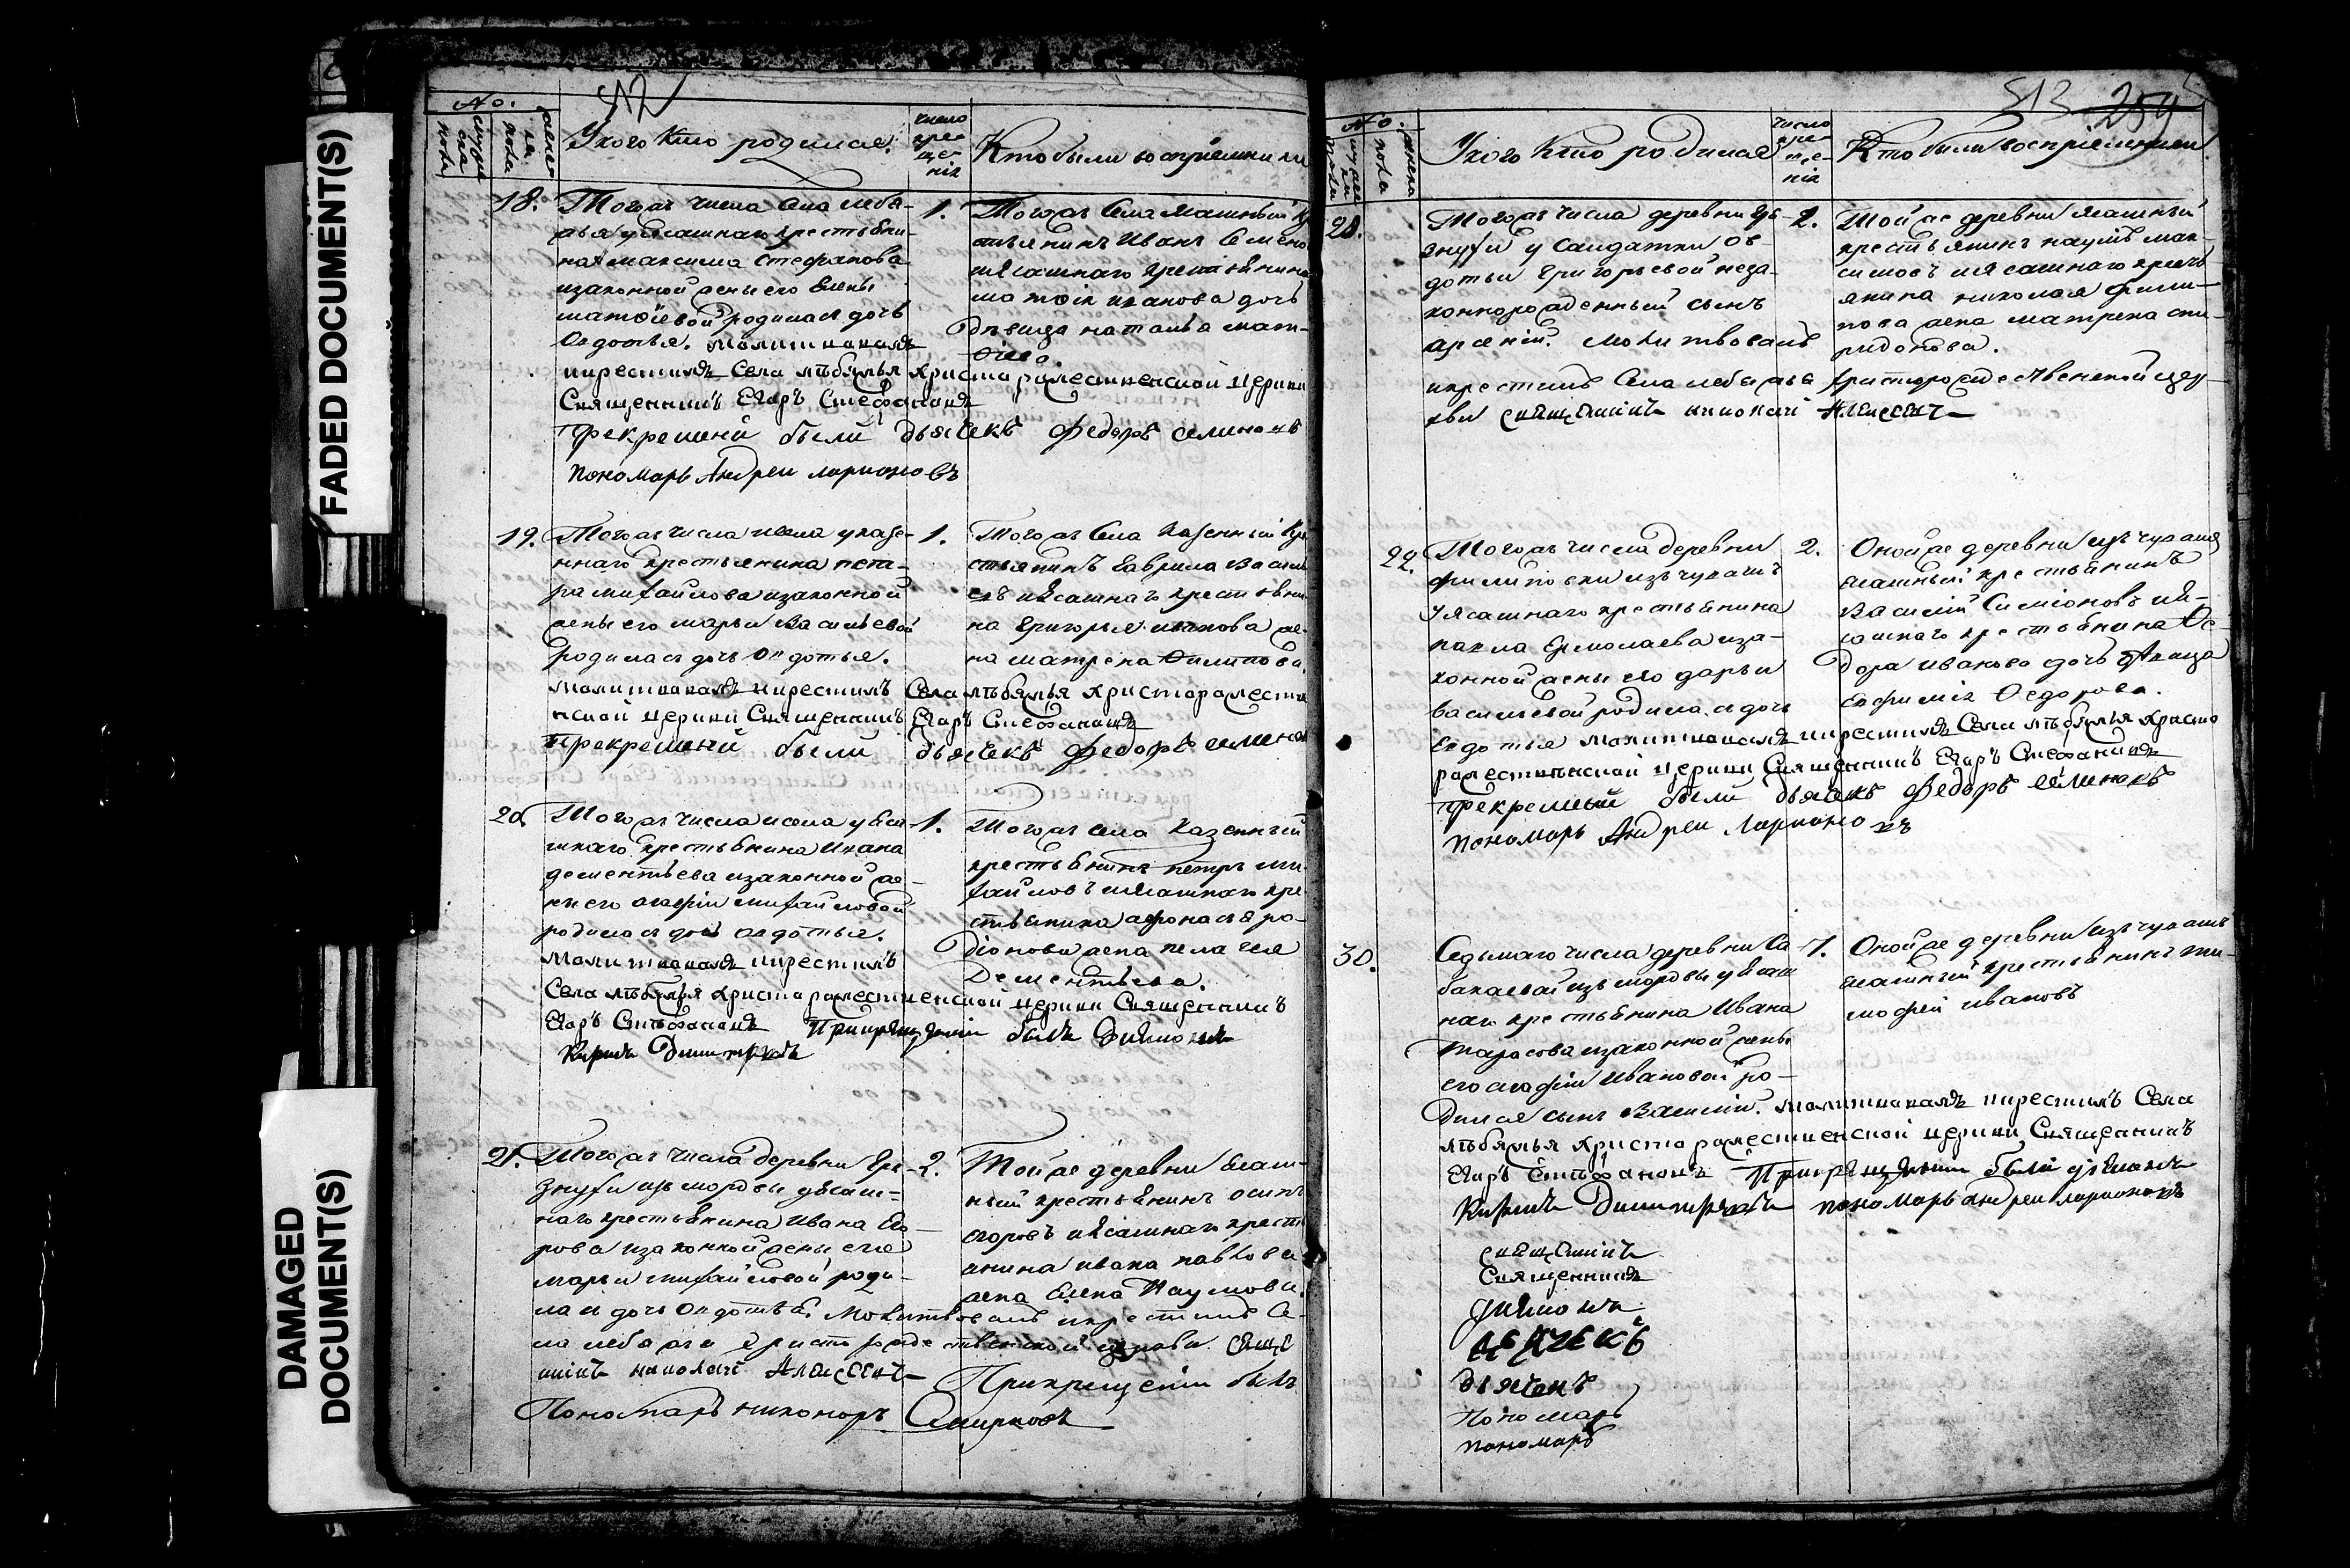 FADED DOCUMENT(S)
DAMAGED
DOCUMENT(S)
512
No.
мужеска пола
женска пола
Укого Кто родился.
число крещенія
Кто были восприемники
18.
Тогожъ числа Села Лебя-
жья уясашнаго крестьяни-
на максима стефанова
изаконной жены его Елены
матвѣевой родилася дочь
Овдотья. Молитвовалъ
икрестилъ Села лѣбяжья христорожественской церкви
Священникъ Егоръ Стефановъ
Прекрещеній были дьячекъ Федоръ семеновъ
пономарь Андреи ларионовъ
1.
Тогожъ Села Ясашный кре
стьянинъ Иванъ Семено
иясашнаго крестьянина
иванова дочь
дѣвица наталья мат-
фіева.
19.
Тогожъ числа исела указе-
ннаго крестьянина пета-
ра михайлова изаконной
жены его марьи Васильевой
родилася дочь Овдотья.
молитвовалъ икрестилъ Села лѣбяжья христорожестве
нской церкви Священникъ Егоръ Стефановъ
Прекрещеній были дьячекъ Федоръ семенов
1.
Тогожъ Села Казенный кре
стьянинъ Гаврила Васил
евъ иясашнаго крестьяни
на Григорья иванова же-
на матрена Филипова.
20.
Тогожъ числа исела уяса-
шнаго крестьянина Ивана
дементьева изаконной же-
ны его агафіи михайловой
родилася дочь овдотья.
Молитвовалъ икрестилъ
Села лѣбяжья христорожественской церкви Священникъ
Егоръ Стефановъ Прикрещеніи былъ Діяконъ
Кирилъ Димитриевъ
1.
Тогожъ села Казенный
крестьянинъ петръ ми-
хайловъ иясашнаго кре
стьянина афонасья ро-
діонова жена пелагея
Дементьева.
21.
Тогожъ числа деревни Гря-
знухи изъ мордвы уясаш-
наго крестьянина Ивана Его-
рова изаконной жены его
марьи михайловой роди-
лася дочь Овдотья. Молитвовалъ икрестилъ Се-
ла лебяжья христорождественской церкви свяще
никъ николай Алексеевъ Прикрещеніи былъ
Пономарь никоноръ Смирновъ
2.
Тойже деревни Ясаш-
ный крестьянинъ осипъ
егоровъ иясашнаго кресть
янина ивана павлова
жена Елена Наумова.
513 259
No.
Укого Кто родился
число крещенія
Кто были восприемники
28.
Тогожъ числа деревни Гря-
знухи у Салдатки Ов-
дотьи Григорьевой неза-
коннорожденный сынъ
арсеній. молитвовалъ
икрестилъ Села лебяжья христорождественской цер-
кви священникъ николай Алексеевъ
2.
Тойже деревни Ясашный
крестьянинъ наумъ мак-
симовъ иясашнаго кресть-
янина николая фили-
пова жена матрена спи-
ридонова.
22.
Тогожъ числа деревни
филиповки изъ чувашъ
уясашнаго крестьянина
павла Ермолаева иза-
конной жены его дарьи
васильевой родилася дочь
Евдотья молитвовалъ икрестилъ Села лѣбяжья христо
рожественской церкви Священникъ Егоръ Стефановъ
прекрещеній были дьячекъ Федоръ семеновъ
пономарь Андреи Ларионовъ
2.
Онойже деревни изъ чувашъ
ясашный крестьянинъ
Василій Симіоновъ ия-
сашнаго крестьянина Фе-
дора иванова дочь девица
Евфимія Федорова.
30.
Седьмаго числа деревни Са
бакаевой изъ мордвы уясаш
наго крестьянина Ивана
тарасова изаконной жены
его агафіи Ивановой ро-
дился сынъ Василій. молитвовалъ икрестилъ Села
лѣбяжья христорожественской церкви Священникъ
Егоръ Стефановъ Прикрещеніи были діяконъ
Кирилъ Димитриевъ пономарь андреи ларионовъ
7.
Онойже деревни изъ чувашъ
ясашный крестьянинъ ти-
мофей ивановъ
священникъ
Священникъ
Діяконъ
дьячекъ
дьячекъ
Пономарь
пономарь